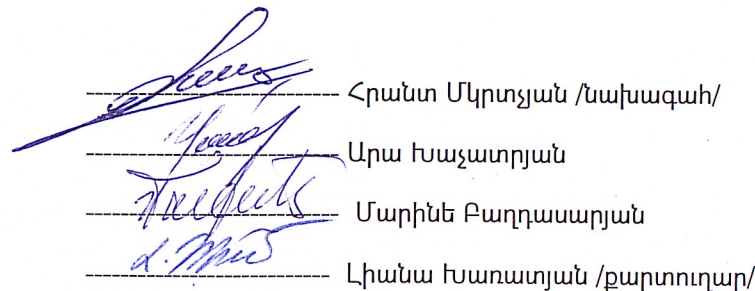 Հրանտ Մկրտչյան /նախագահ/
Արա Խաչատրյան
Մարինե Բաղդասարյան
Լիանա Խառատյան /քարտուղար/